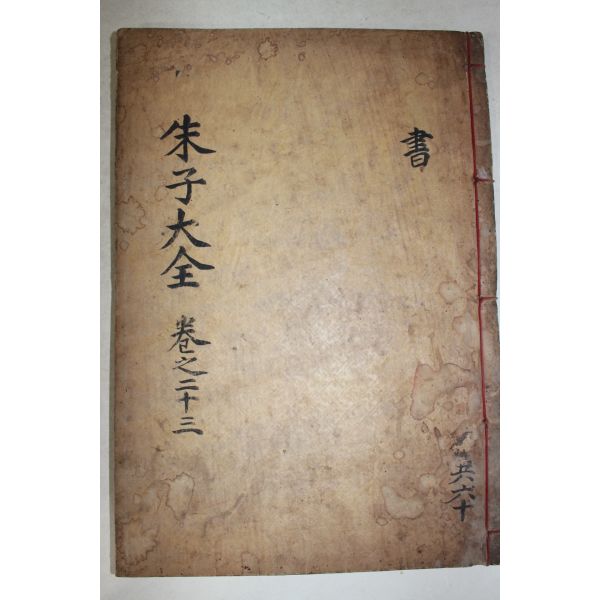 書
共六十
朱子大全 卷之二十三